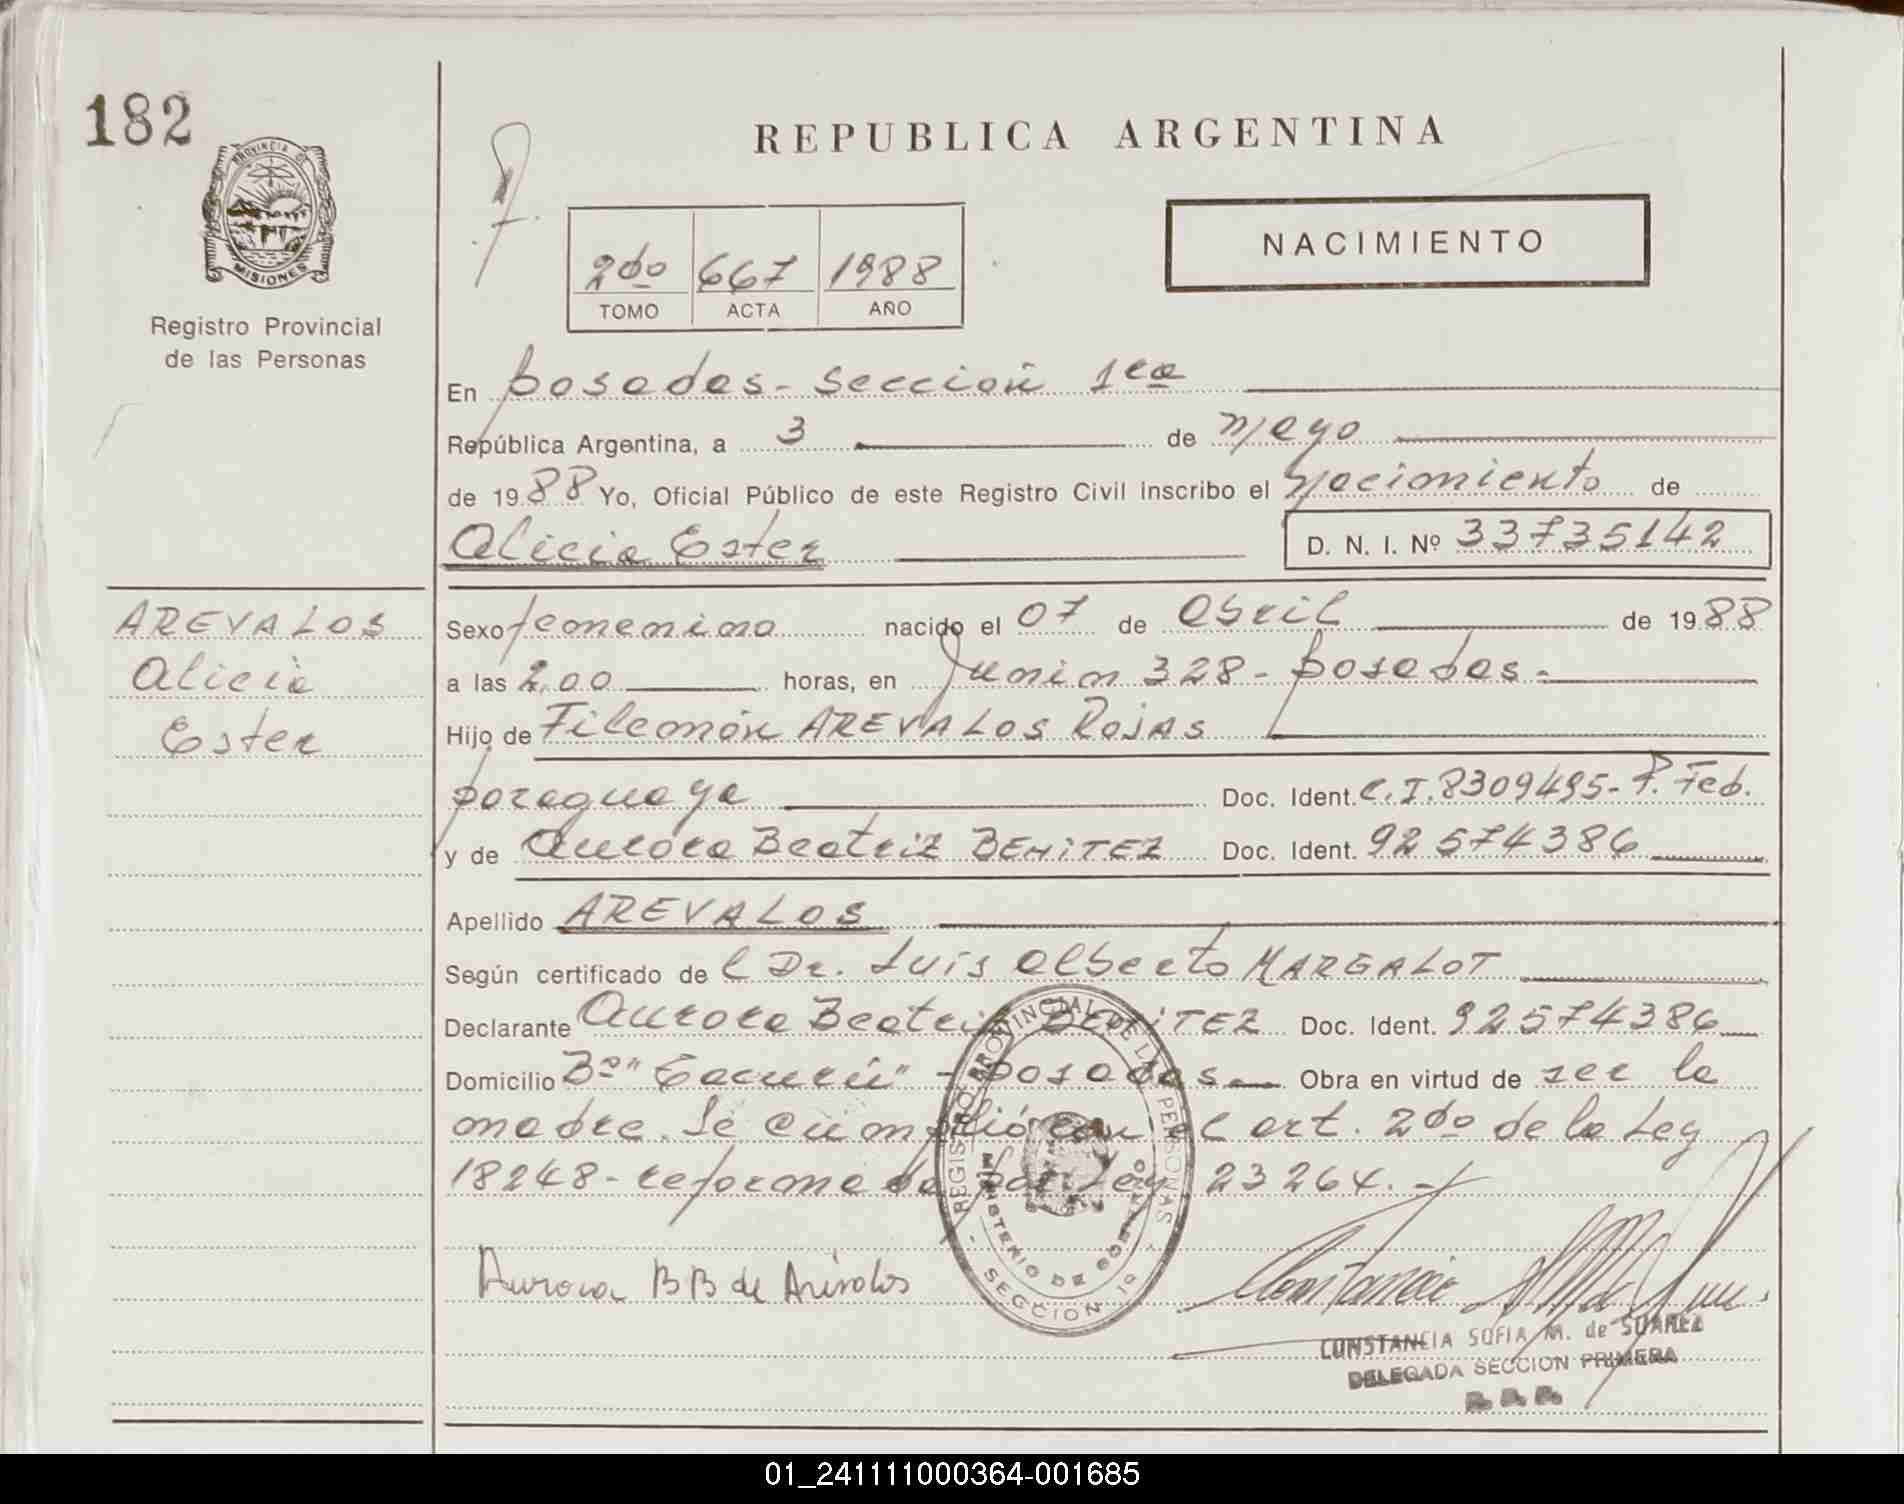 182
REPUBLICA ARGENTINA
PROVINCIA DE
MISIONES
Registro Provincial
de las Personas
NACIMIENTO
2do 667 1988
TOMO ACTA AÑO
En Posadas - Sección 1ra
República Argentina, a 3 de Mayo
de 1988 Yo, Oficial Público de este Registro Civil inscribo el Nacimiento de
Alicia Ester D. N. I. Nº 33735142
AREVALOS
Alicia
Ester
Sexo femenino nacido el 07 de Abril de 1988
a las 2,00 horas, en Junin 328 - Posadas -
Hijo de Filemón AREVALOS ROJAS
paraguaya Doc. Ident. C.I. 8309495 - P. Fed.
y de Aurora Beatriz BENITEZ Doc. Ident. 92574386
Apellido AREVALOS
Según certificado de l Dr. Luis Alberto MARGALOT
Declarante Aurora Beatriz BENITEZ Doc. Ident. 92574386
Domicilio Bº " " - Posadas Obra en virtud de ser la
madre. Se cumplió con el art. 2do de la Ley
18248 - reformada por Ley 23264. -
REGISTRO PROVINCIAL DE LAS PERSONAS
MINISTERIO DE GOBIERNO
SECCION 1º
Aurora BB de Arévalos
CONSTANCIA SOFIA M. de SUAREZ
DELEGADA SECCION PRIMERA
01_241111000364-001685